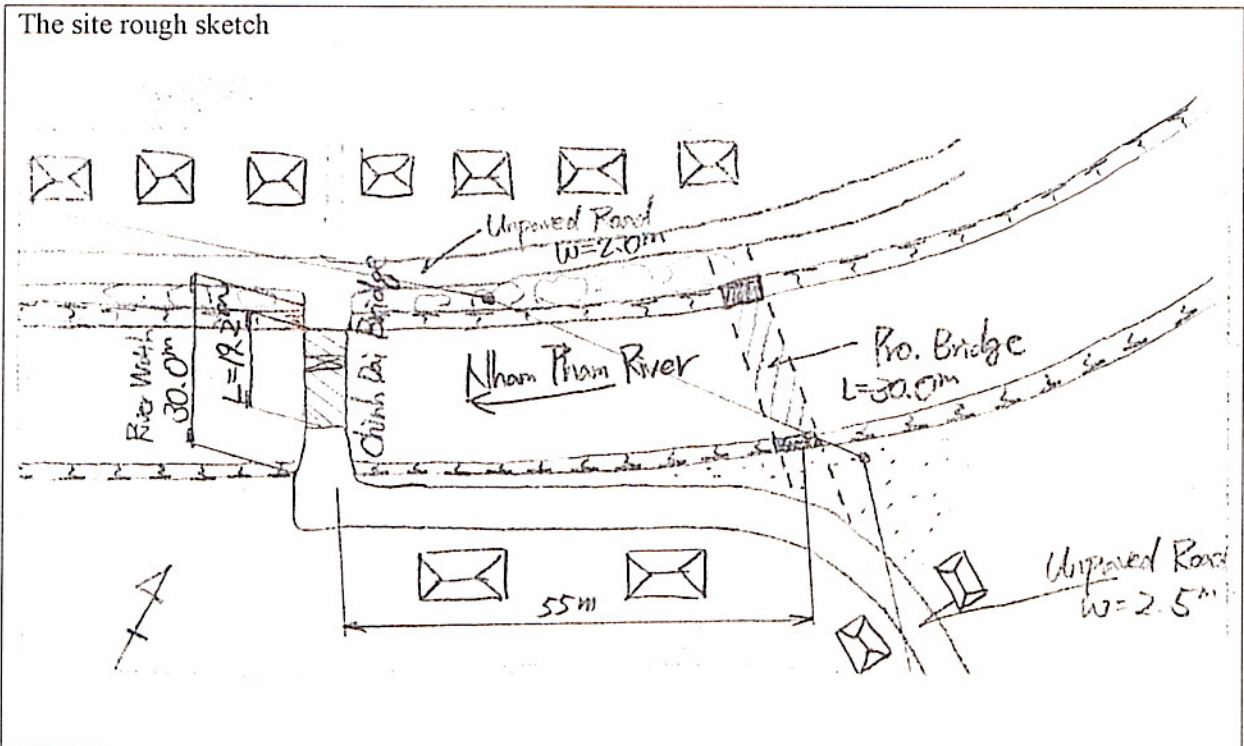 The site rough sketch
Unpaved Road
W=2.0m
River Width
30.0m
L=19.2m
Chinh Dai Bridge
Nham Pham River
Pro. Bridge
L=30.0m
55m
Unpaved Road
W=2.5m